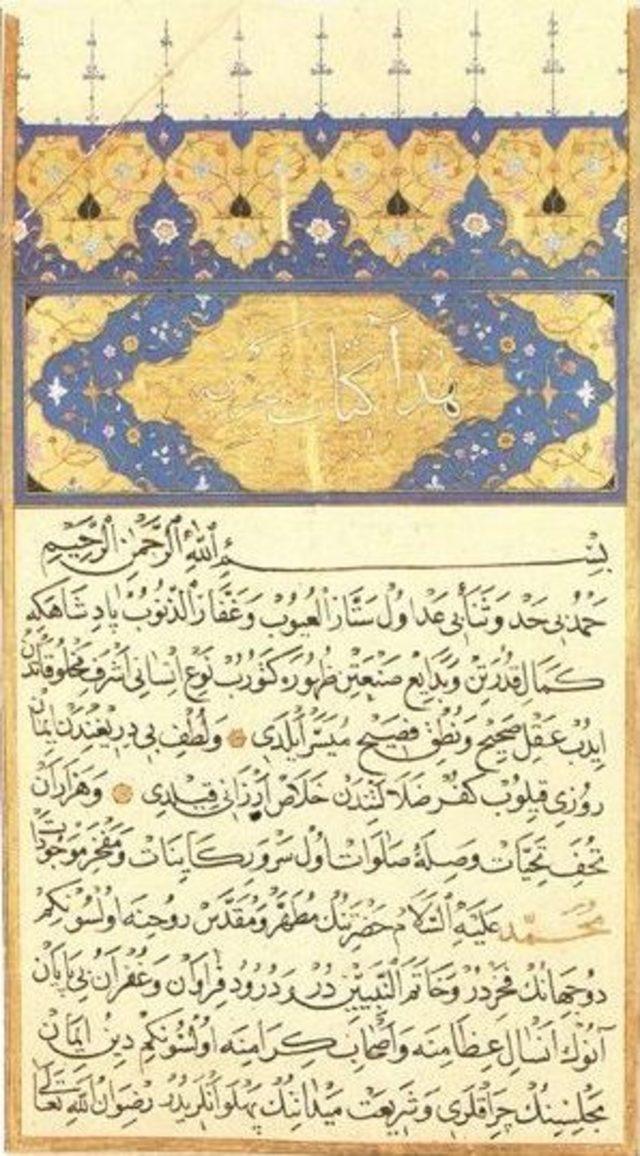 هذا كتاب بحريه
بسم الله الرحمن الرحيم
حمد بی حد و ثنا بی عد اول ستار العیوب و غفار الذنوب پادشاهكه
كمال قدرتن و بدایع صنعتن ظهوره كتورب نوع انسانی اشرف مخلوقاتدن
ایدب عقل صحیح و نطق فصیح میسر ایلدی و لطف بی دریغندن ایمان
روزی قیلوب كفر ضلالتندن خلاص ارزانی قیلدی و هزاران
تحف تحیات وصلهٔ صلوات اول سرور كاینات و مفخر موجودات
محمد علیه السلام حضرتنك مطهر و مقدس روحنه اولسونكم
دو جهانك فخردر و خاتم النبییندر و درود فراوان و غفران بی پایان
آنوك انسال عظامنه و اصحاب كرامنه اولسونكم دین ایمان
مجلسنك چراقلری و شریعت میداننك پهلوانلریدر رضوان الله تعالی